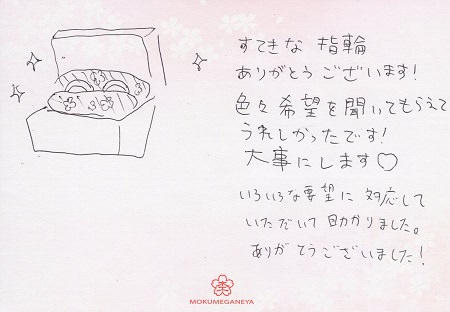 すてきな 指輪
ありがとうございます!
色々希望を聞いてもらえて
うれしかったです!
大事にします♡
いろいろな要望に対応して
いただいて助かりました。
ありがとうございました!
MOKUMEGANEYA